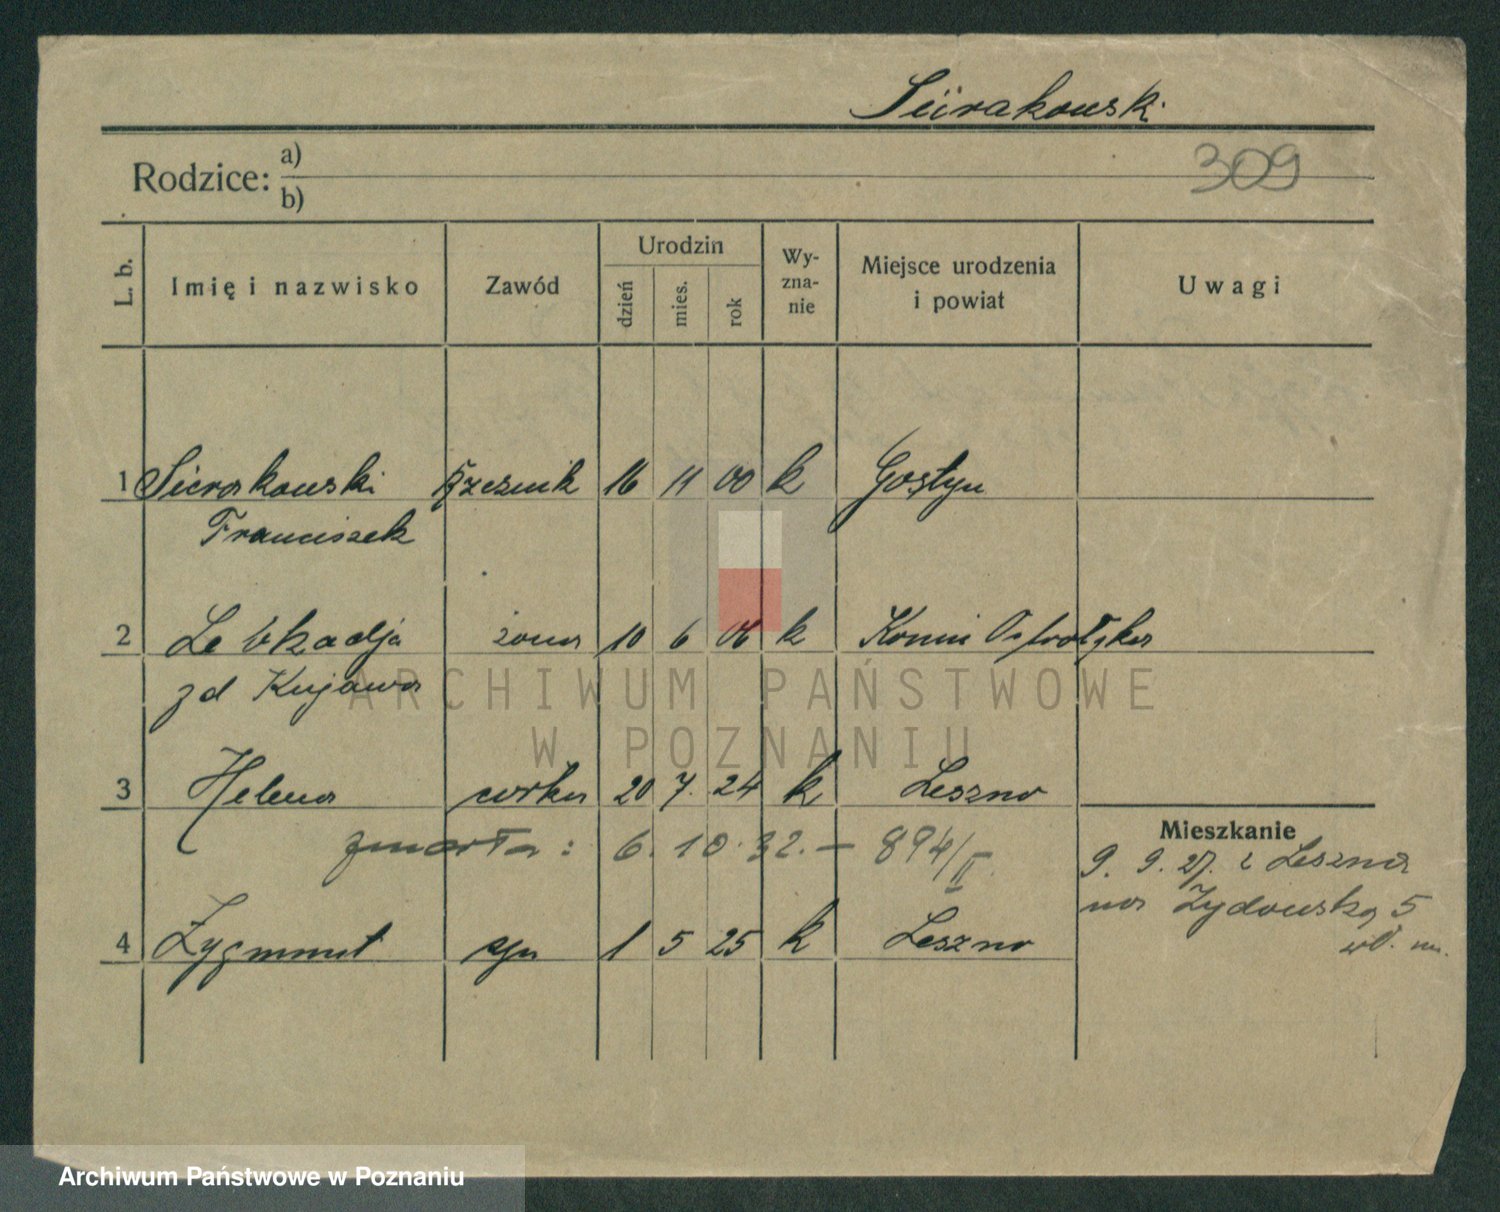 Sierakowski
Rodzice: a)
b)
309
L. b.
Imię i nazwisko
Zawód
Urodzin
dzień
mies.
rok
Wy-
zna-
nie
Miejsce urodzenia
i powiat
Uwagi
1 Sierakowski rzeźnik 16 11 00 k Gostyn
Franciszek
2 Leokadja żona 10 6 06 k
zd Kujawa
3 Helena córka 20 7. 24 k Leszno
zmarła: 6. 10. 32. — 894/II.
Mieszkanie
9. 9. 27. z Leszna
na Żydowską 5
4 Zygmunt syn 1 5 25 k Leszno
ARCHIWUM PAŃSTWOWE
W POZNANIU
Archiwum Państwowe w Poznaniu